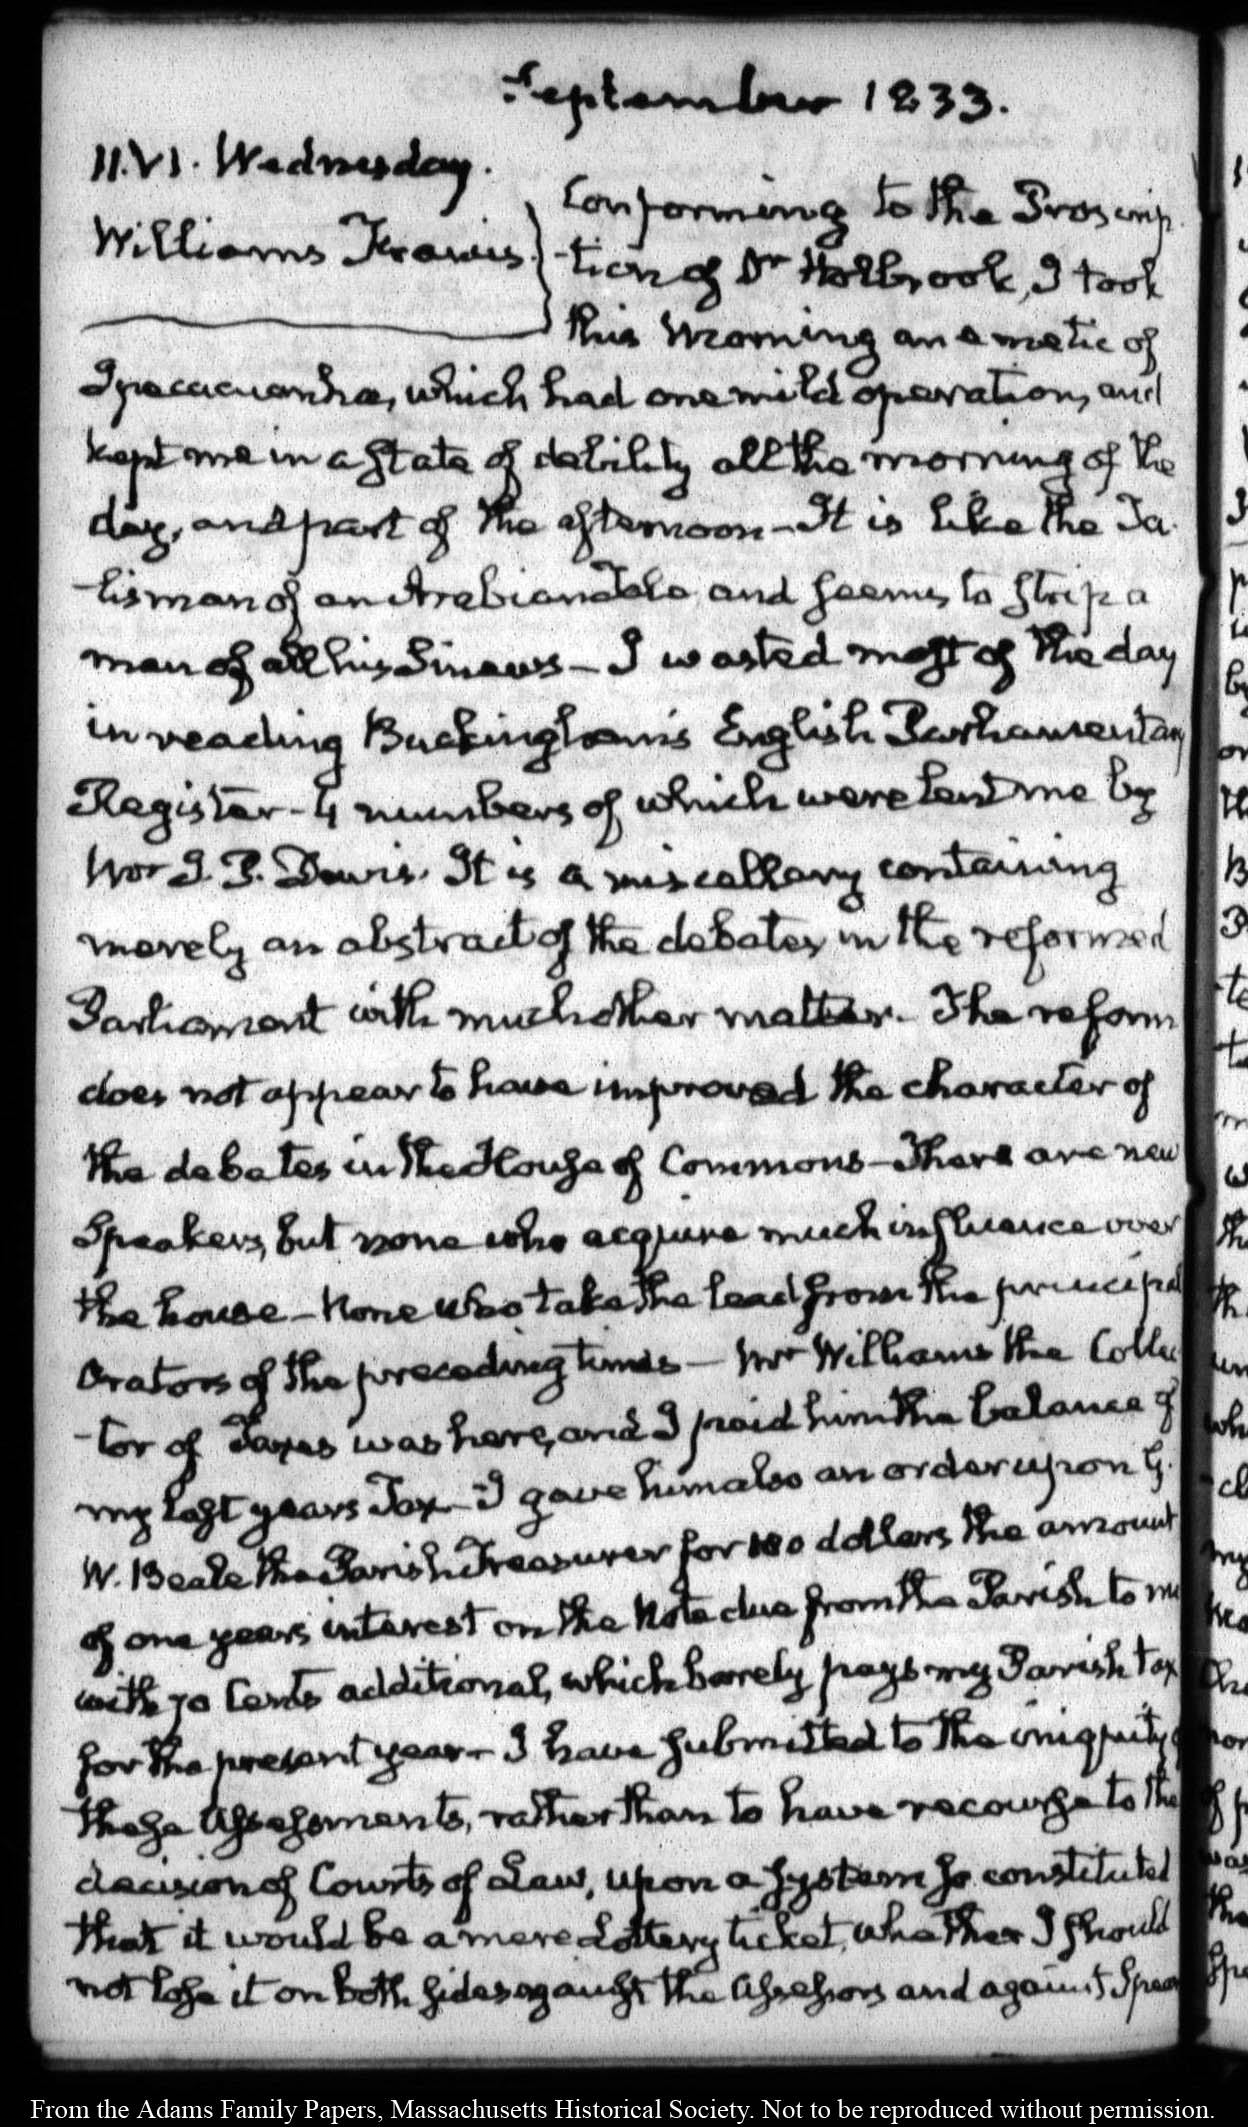 September 1833.
11. VI. Wednesday.
Williams Francis.
Conforming to the Proscrip
-tion of Dr Holbrook, I took
this Morning an emetic of
Ipecacuanha, which had one mild operation, and
kept me in a State of debility all the morning of the
day, and part of the afternoon - It is like the Ta
-lisman of an Arabian Tale and seems to strip a
man of all his Sinews - I wasted most of the day
in reading Buckingham's English Parliamentary
Register - 4 numbers of which were lent me by
Mr I. P. Davis. It is a miscellany containing
merely an abstract of the debates in the reformed
Parliament with much other matter. The reform
does not appear to have improved the character of
the debates in the House of Commons - There are new
Speakers, but none who acquire much influence over
the house - None who take the lead from the principal
Orators of the preceding times - Mr Williams the Collec
-tor of Taxes was here, and I paid him the balance of
my last years Tax - I gave him also an order upon G.
W. Beale the Parish Treasurer for 180 dollars the amount
of one years interest on the Note due from the Parish to me
with 70 Cents additional, which barely pays my Parish tax
for the present year - I have submitted to the iniquity of
these Assessments, rather than to have recourse to the
decision of Courts of Law, upon a System so constituted
that it would be a mere Lottery ticket, whether I should
not lose it on both sides against the Assessors and against Spear
From the Adams Family Papers, Massachusetts Historical Society. Not to be reproduced without permission.